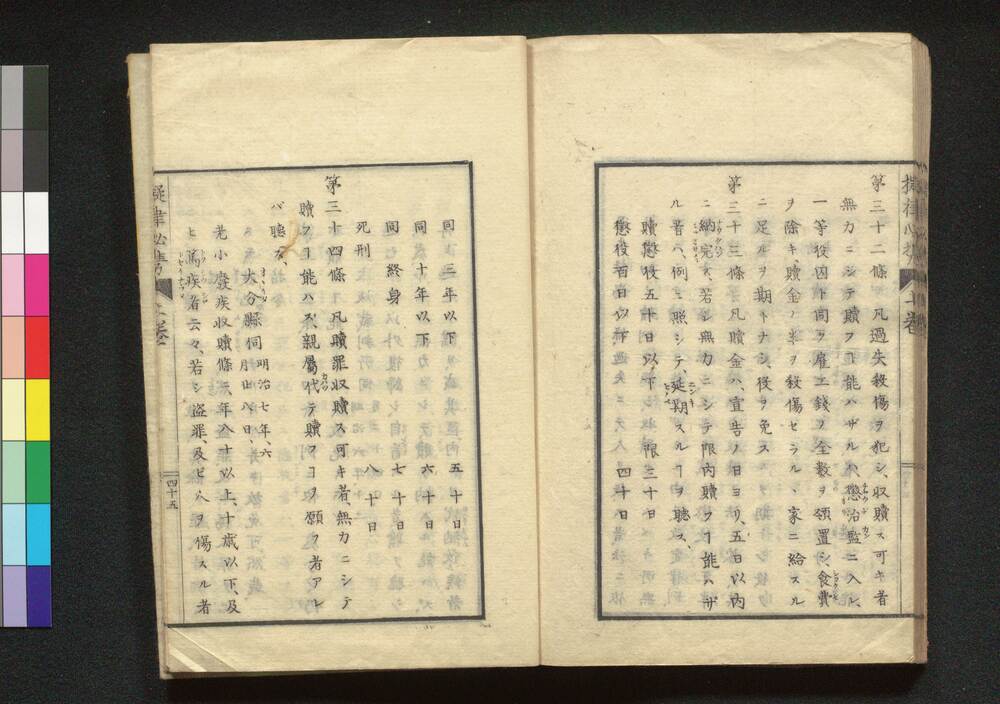 第三十二條 凡過失殺傷ヲ犯シ、収贖ス可キ者
無力ニシテ贖フヿ能ハザルハ、懲治監ニ入ル、
一等役囚ト同ク雇工錢ノ全數ヲ領置シ、食費
ヲ除キ、贖金ノ半ヲ殺傷セラルヽ家ニ給スル
ニ足ルヲ期トナシ、役ヲ免ス、
第三十三條 凡贖金ハ、宣告ノ日ヨリ、五日以内
ニ納完ス、若シ無力ニシテ限内贖フヿ能ハザ
ル者ハ、例ニ照シテ、延期スルヿヲ聽ス、
贖懲役五十日以下 限三十日
懲役百日以下 四十日
同 三年以下 五十日
同 十年以下 六十日
同 終身 七十日
死刑 八十日
第三十四條 凡贖罪収贖ス可キ者無力ニシテ
贖フヿ能ハズ、親屬代テ贖フヿヲ願フ者アレ
バ聽ス、
大分縣伺 明治七年、六
月廿八日、
老小癈疾収贖條ニ、年八十以上、十歳以下、及
ヒ篤疾者云々、若シ盗罪、及ビ人ヲ傷スル者
擬律必携 上卷
四十五